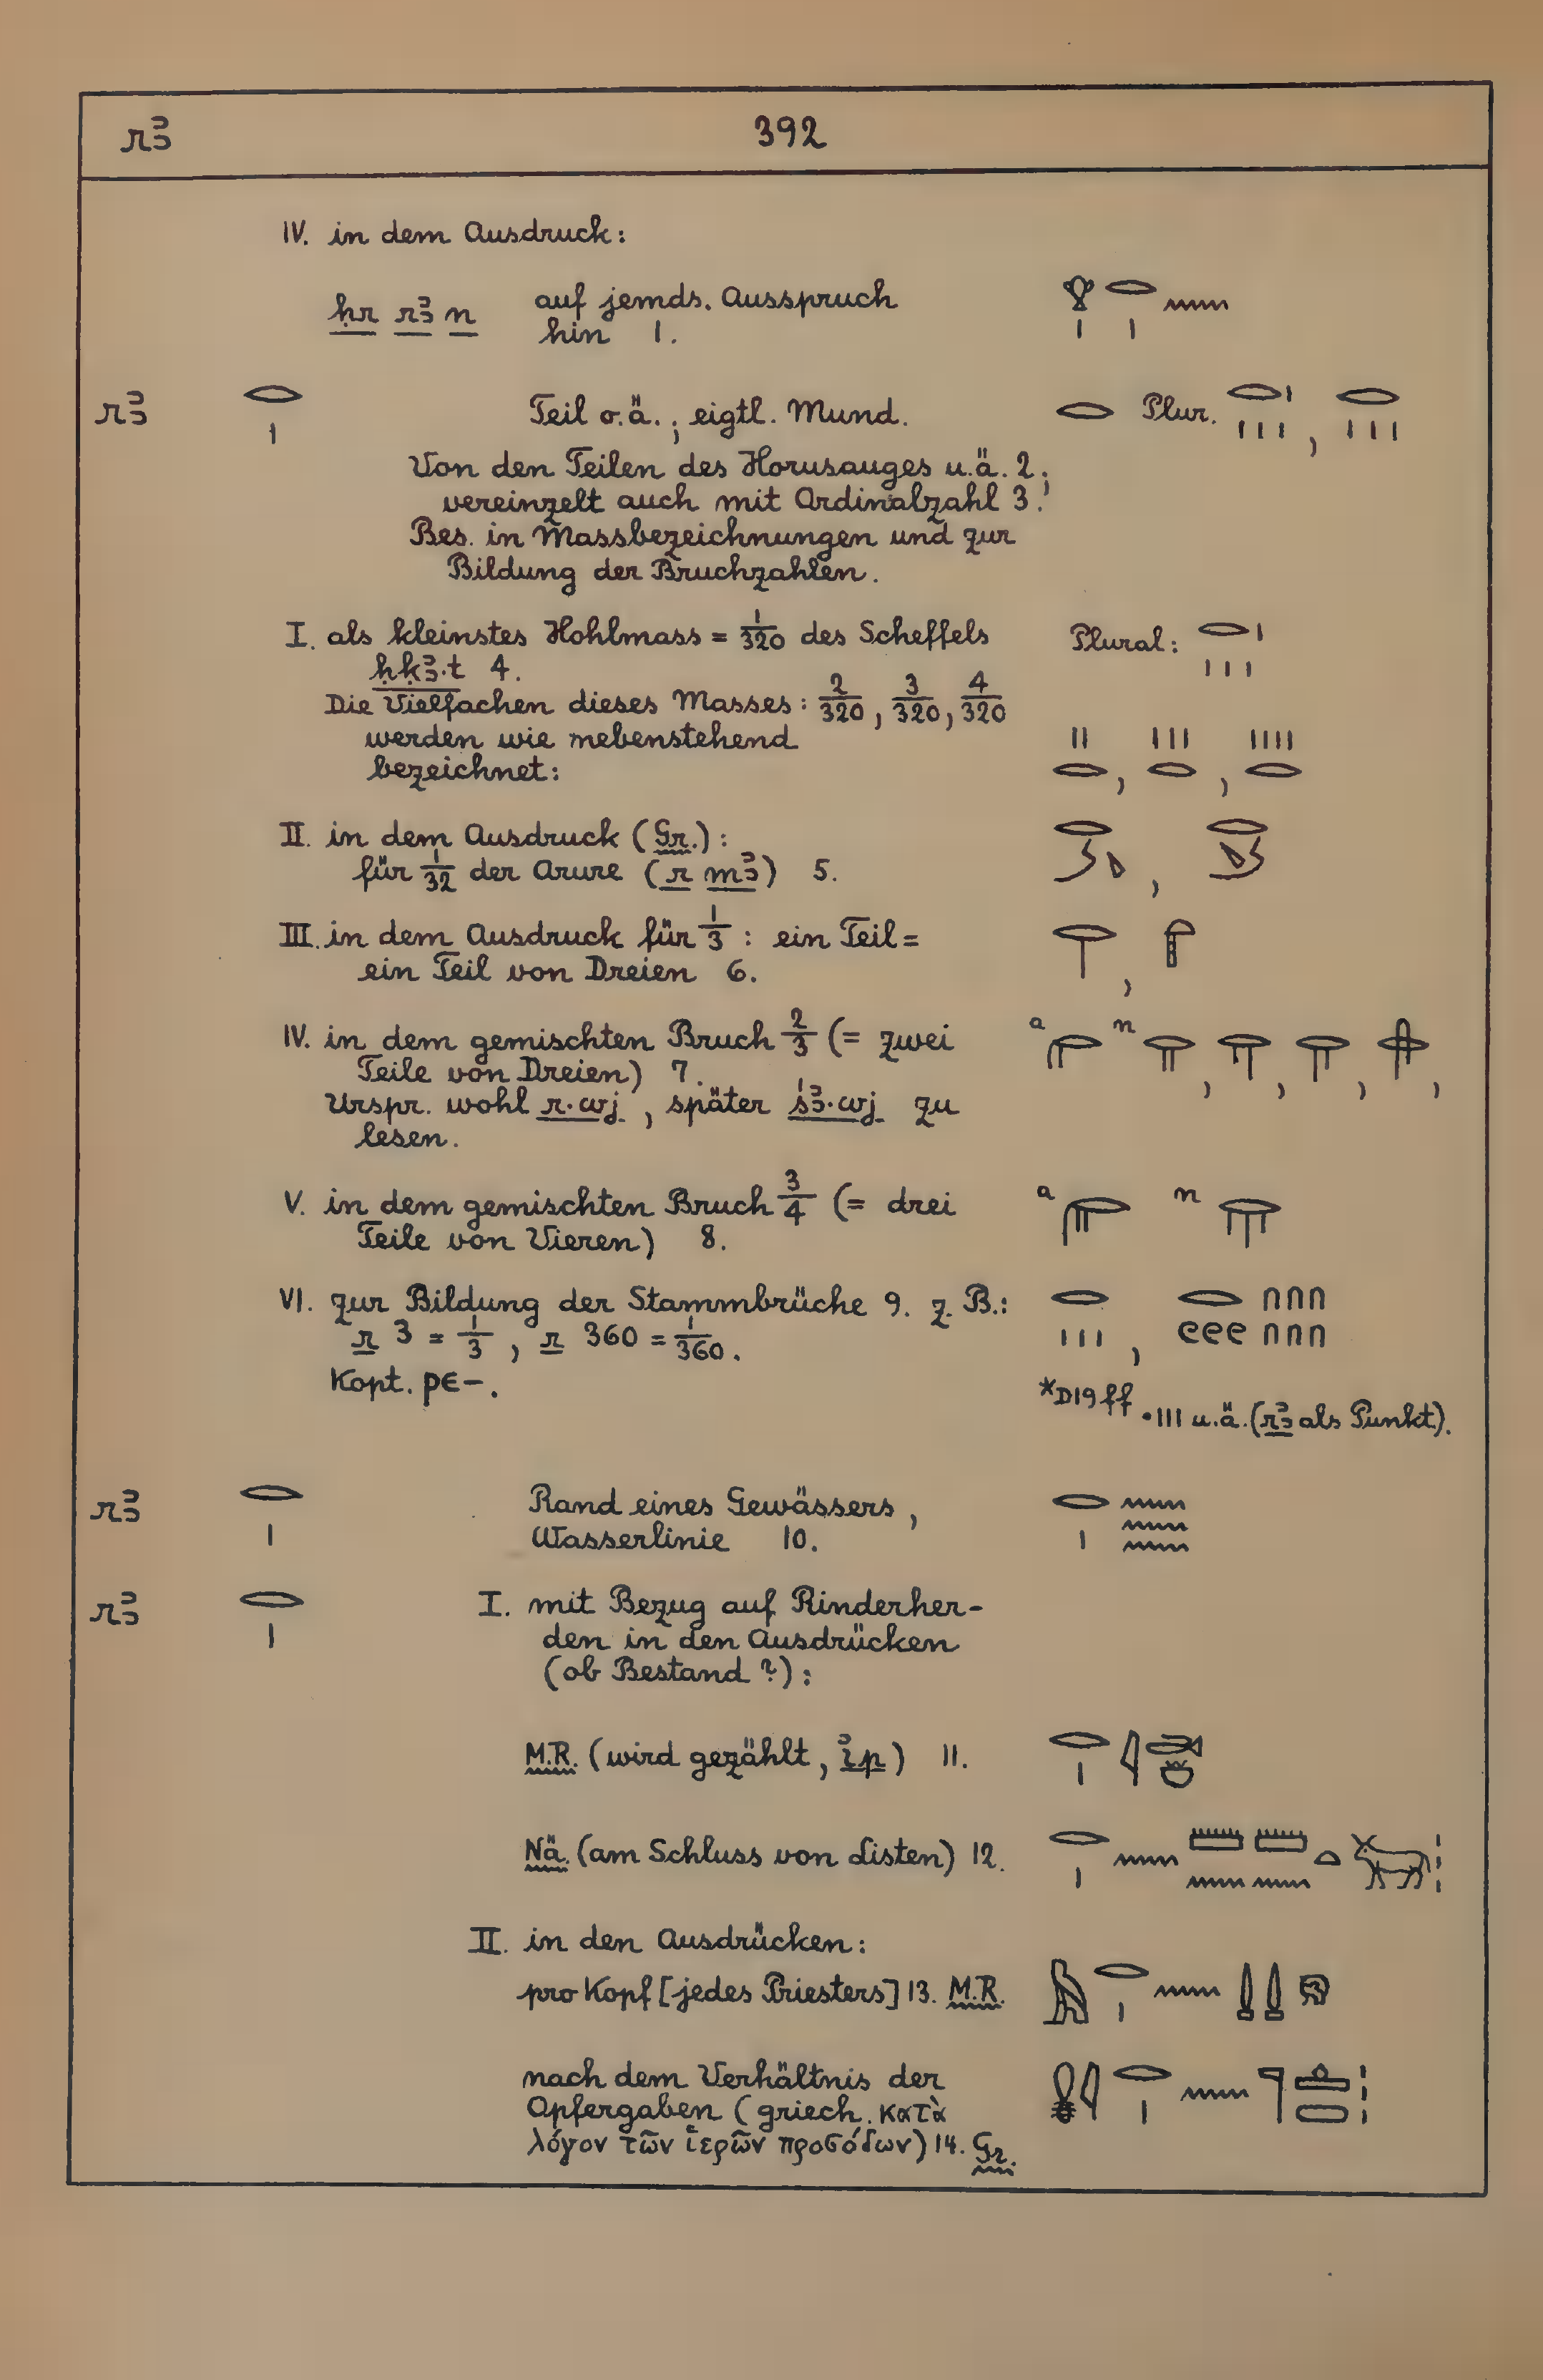 rꜣ 392
IV. in dem Ausdruck:
ḥr rꜣ n auf jemds. Ausspruch
hin 1.
rꜣ Teil o.ä.; eigtl. Mund. Plur.
Von den Teilen des Horusauges u.ä. 2;
vereinzelt auch mit Ordinalzahl 3.
Bes. in Massbezeichnungen und zur
Bildung der Bruchzahlen.
I. als kleinstes Hohlmass = 1/320 des Scheffels Plural:
ḥḳꜣ.t 4.
Die Vielfachen dieses Masses: 2/320, 3/320, 4/320
werden wie nebenstehend
bezeichnet:
II. in dem Ausdruck (Gr.):
für 1/32 der Arure (r mꜣ) 5.
III. in dem Ausdruck für 1/3: ein Teil =
ein Teil von Dreien 6.
IV. in dem gemischten Bruch 2/3 (= zwei a n
Teile von Dreien) 7.
Urspr. wohl r.wj, später śꜣ.wj zu
lesen.
V. in dem gemischten Bruch 3/4 (= drei a n
Teile von Vieren) 8.
VI. zur Bildung der Stammbrüche 9. z.B.:
r 3 = 1/3, r 360 = 1/360.
Kopt. ⲣⲉ-.
*D19ff • III u.ä. (rꜣ als Punkt).
rꜣ Rand eines Gewässers,
Wasserlinie 10.
rꜣ I. mit Bezug auf Rinderher-
den in den Ausdrücken
(ob Bestand?):
M.R. (wird gezählt, ꞽp) 11.
Nä. (am Schluss von Listen) 12.
II. in den Ausdrücken:
pro Kopf [jedes Priesters] 13. M.R.
nach dem Verhältnis der
Opfergaben (griech. κατὰ
λόγον τῶν ἱερῶν προσόδων) 14. Gr.